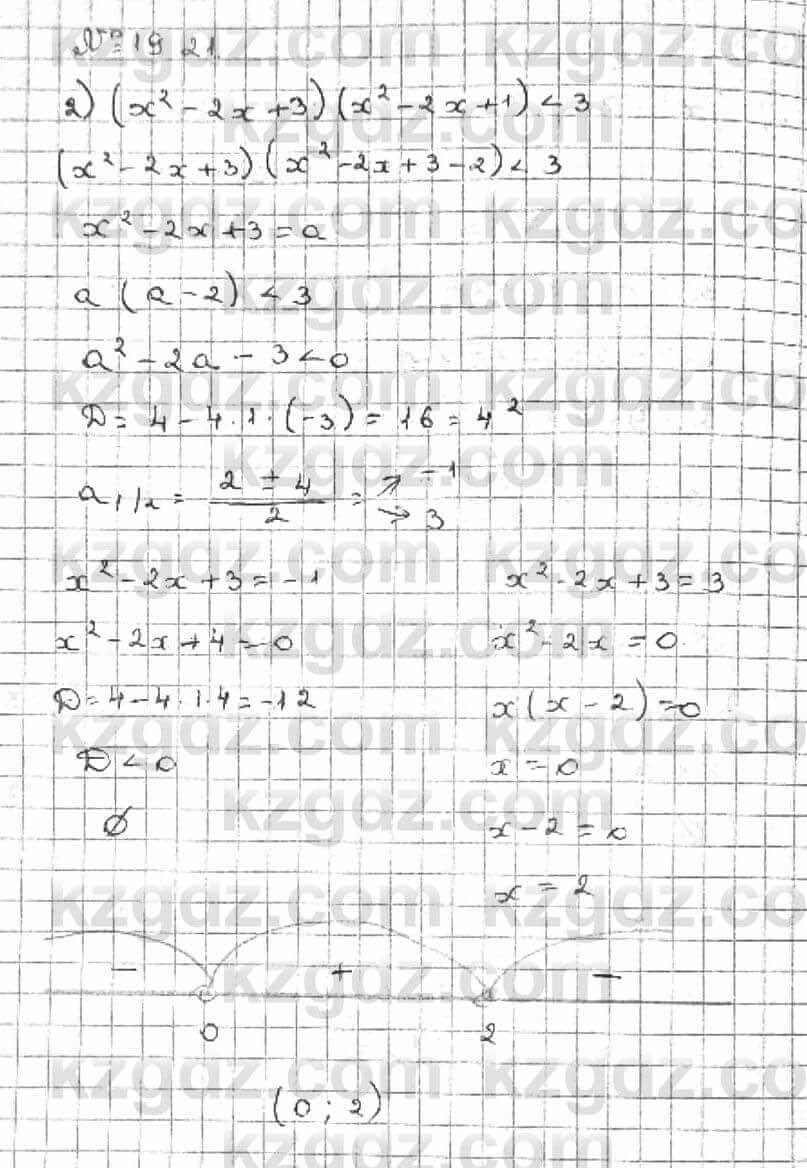 № 19 21.
2) (x² - 2x + 3) (x² - 2x + 1) < 3
(x² - 2x + 3) (x² - 2x + 3 - 2) < 3
x² - 2x + 3 = a
a (a - 2) < 3
a² - 2a - 3 < 0
D = 4 - 4 · 1 · (-3) = 16 = 4²
a 1/2 = (2 ± 4)/2 = ↗ -1 → 3
x² - 2x + 3 = -1
x² - 2x + 4 = 0
D = 4 - 4 · 1 · 4 = -12
D < 0
∅
x² - 2x + 3 = 3
x² - 2x = 0
x (x - 2) = 0
x = 0
x - 2 = 0
x = 2
- + -
0 2
(0 ; 2)
kzgdz.com